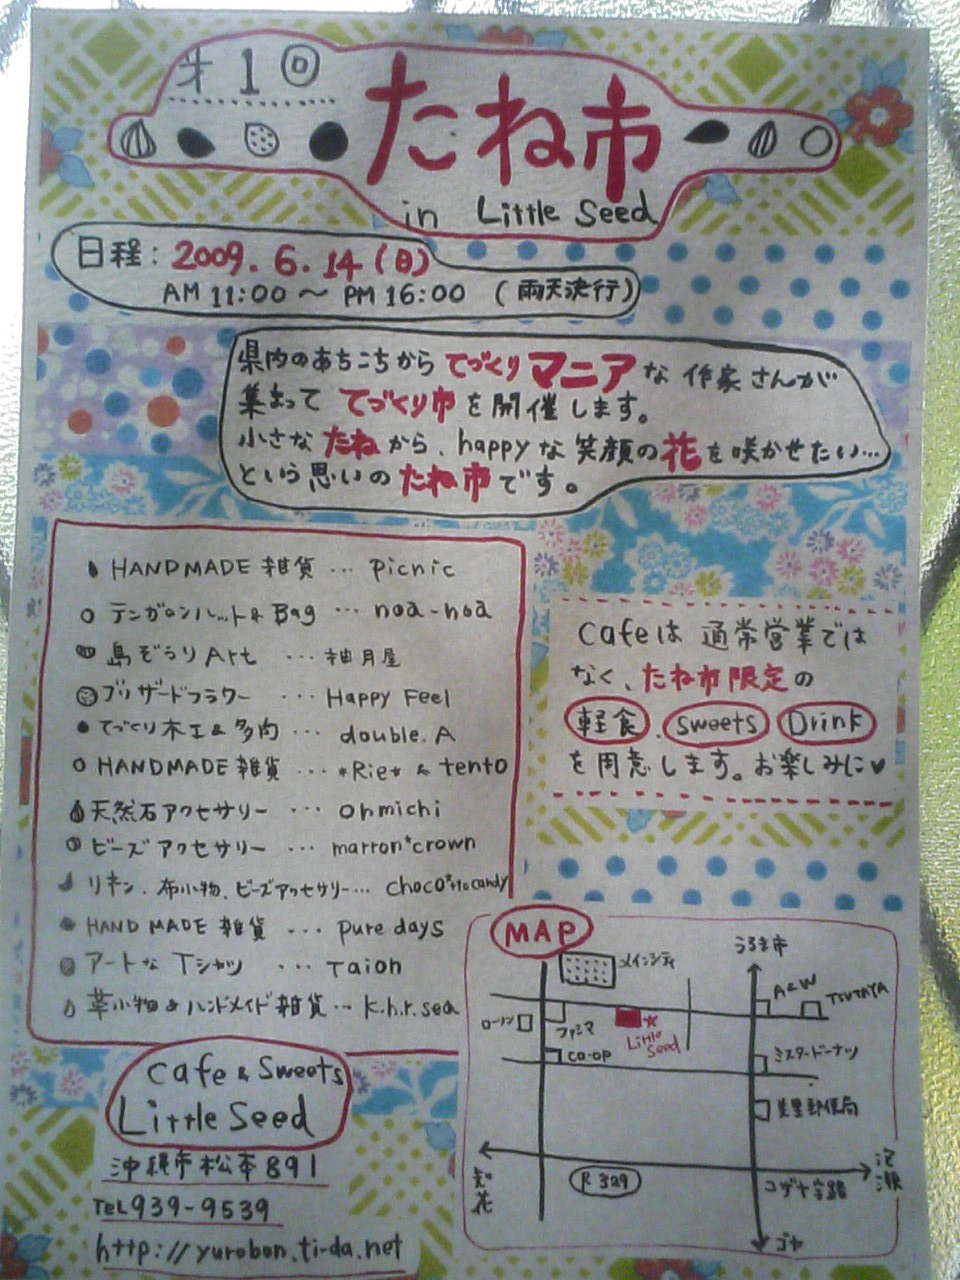 才1回
たね市
in Little Seed
日程: 2009.6.14(日)
AM 11:00 〜 PM 16:00 (雨天決行)
県内のあちこちから てづくりマニアな 作家さんが
集まって てづくり市を開催します。
小さな たねから、happyな笑顔の花を咲かせたい…
という思いの たね市です。
HANDMADE 雑貨 … picnic
テンガロンハット & Bag … noa-noa
島ぞうり Art … 柚月屋
ブリザードフラワー … Happy Feel
てづくり木工 & 多肉 … double.A
HANDMADE 雑貨 … *Rie* & tento
天然石アクセサリー … ohmichi
ビーズ アクセサリー … marron*crown
リネン、布小物、ビーズアクセサリー … choco*
HAND MADE 雑貨 … pure days
アートな Tシャツ … Taion
革小物 & ハンドメイド雑貨 … k.h.r.sea
Cafeは 通常営業では
なく、たね市限定の
軽食、sweets、Drink
を用意します。お楽しみに♥
MAP
メインシティ
うるま市
A&W
TSUTAYA
ローソン
ファミマ
Little Seed
CO-OP
ミスタードーナツ
美里郵便局
知花
R 329
コザ十字路
泡瀬
ゴヤ
cafe & Sweets
Little Seed
沖縄市松本891
TEL 939-9539
http://yurobon.ti-da.net